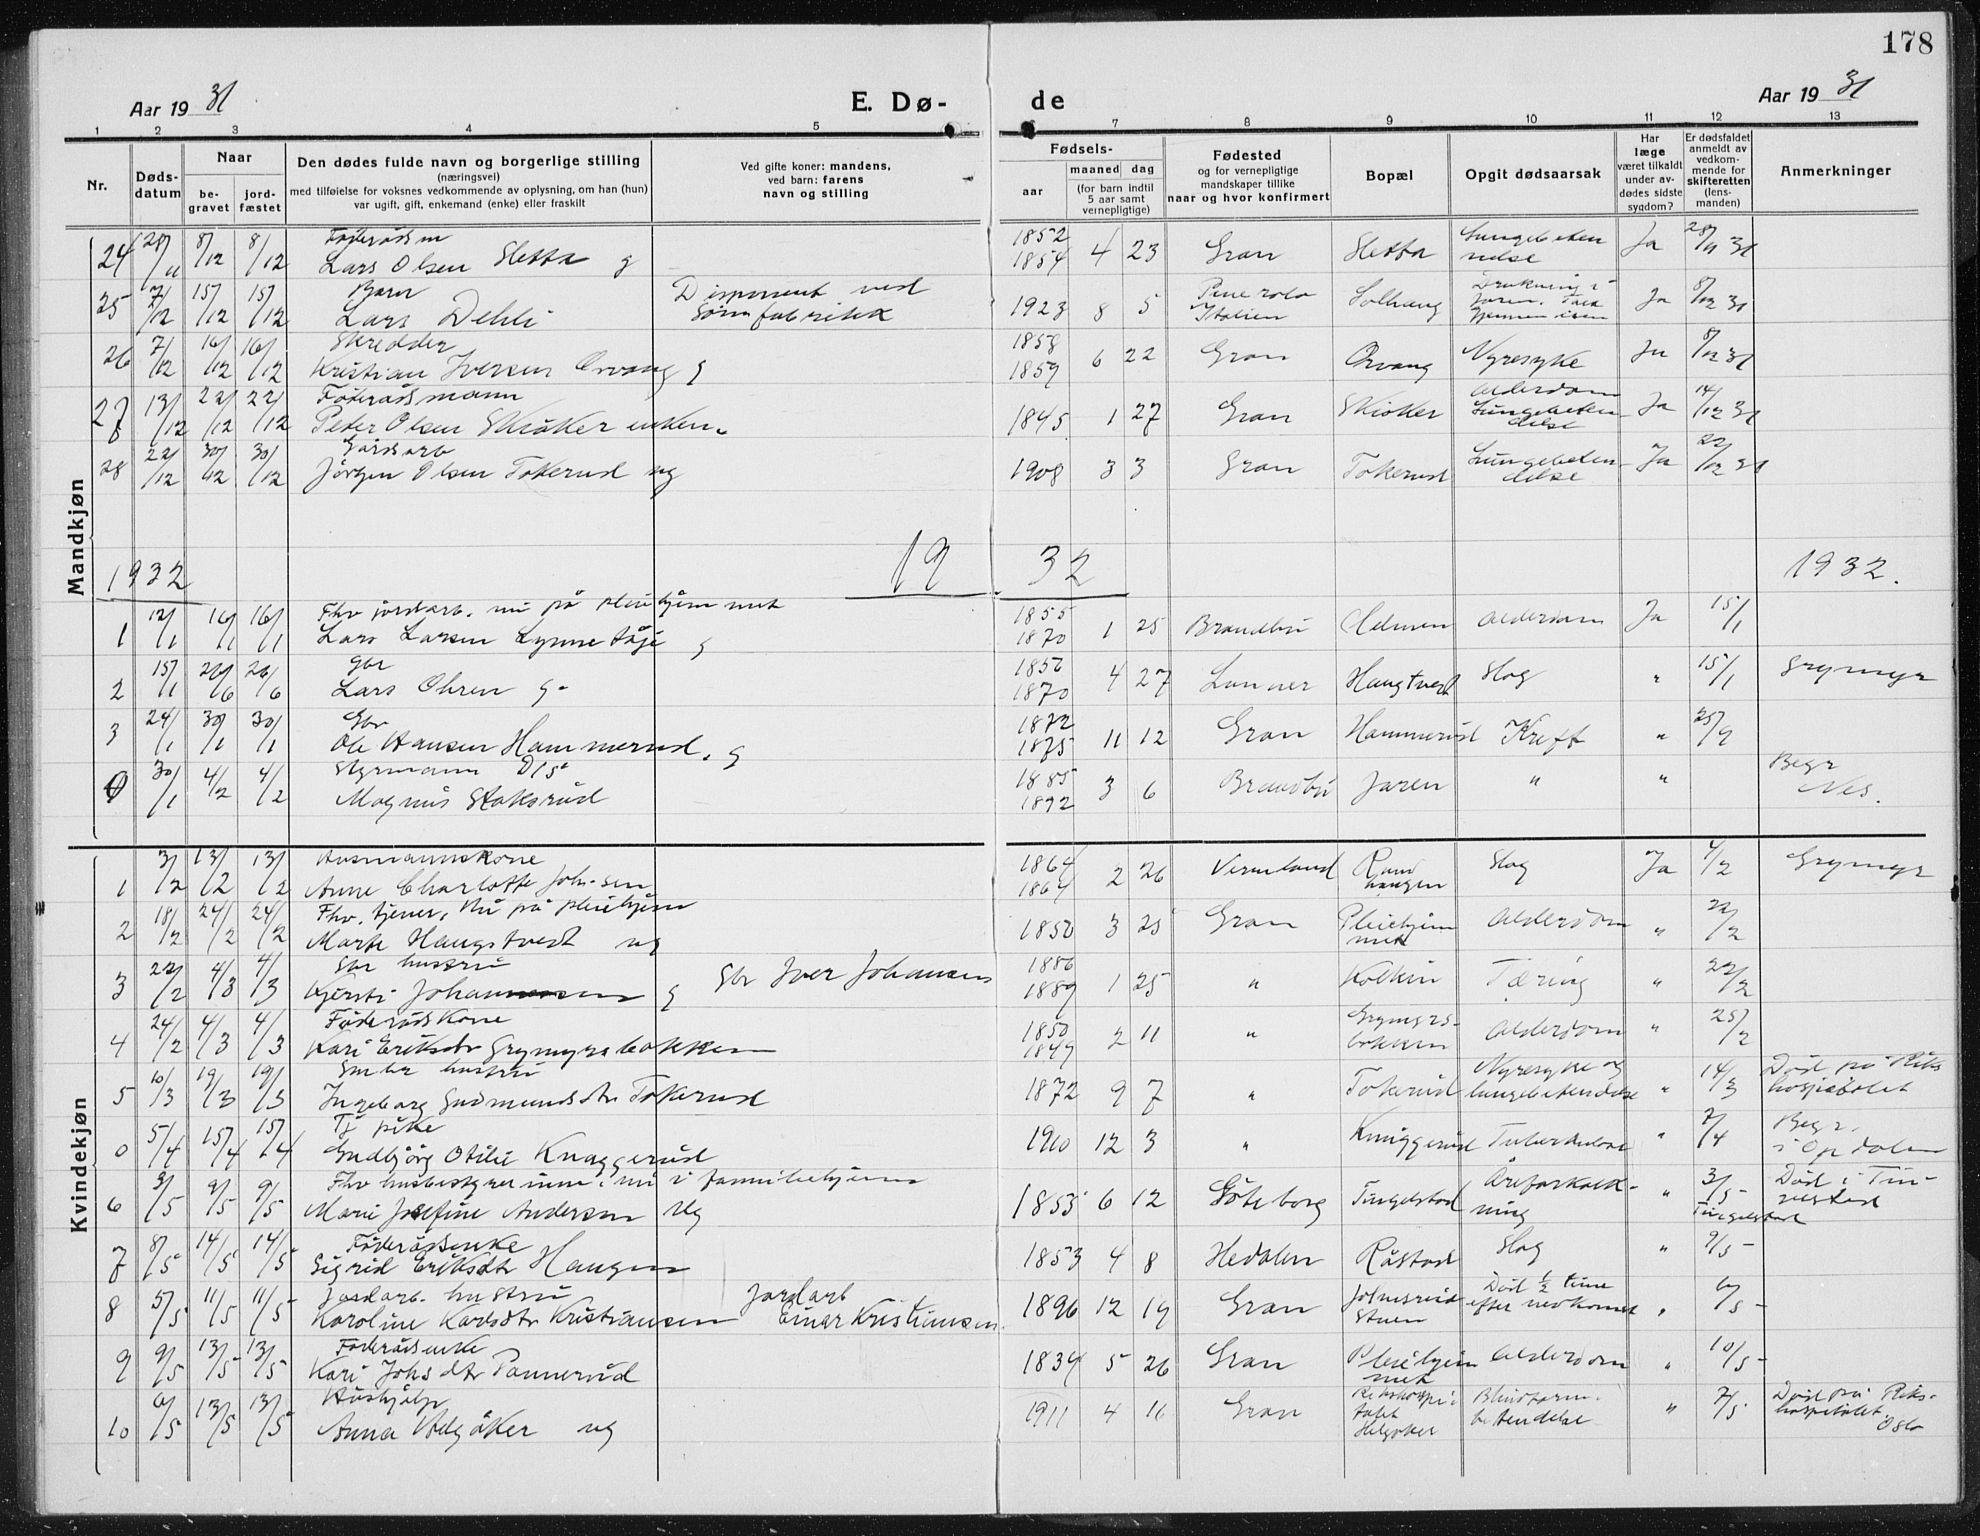 178
Aar 1931 E. Dø- de Aar 1931
1 2 3 4 5 6 7 8 9 10 11 12 13
Nr. Døds-datum Naar be-gravet jord-fæstet Den dødes fulde navn og borgerlige stilling (næringsvei) med tilføielse for voksnes vedkommende av oplysning, om han (hun) var ugift, gift, enkemand (enke) eller fraskilt Ved gifte koner: mandens, ved barn: farens navn og stilling Fødsels- aar maaned dag (for barn indtil 5 aar samt vernepligtige) Fødested og for vernepligtige mandskaper tillike naar og hvor konfirmert Bopæl Opgit dødsaarsak Har læge været tilkaldt under av-dødes sidste sygdom? Er dødsfaldet anmeldt av vedkom-mende for skifteretten (lens-manden) Anmerkninger
Mandkjøn
24 28/11 8/12 8/12 Føderådsm Lars Olsen Sletta g 1852 1854 4 23 Gran Sletta Lungebeten nelse Ja 28/11 31
25 7/12 15/12 15/12 Barn Lars Dehli Disponent ved 1923 8 5 Italien Solhaug Drukning i Jaren. Falt gjennem isen Ja 8/12 31
26 7/12 16/12 16/12 Skredder Kristian Iversen Orvang g 1858 1859 6 22 Gran Orvang Nyresyke Ja 8/12 31
27 13/12 22/12 22/12 Føderådsmann Peder Olsen Skiaker enkem. 1845 1 27 Gran Skiaker Alderdom Lungebeten-delse Ja 14/12 31
28 22/12 30/12 30/12 Gårdsarb Jörgen Olsen Tokerud ug 1908 3 3 Gran Tokerud Lungebeten-delse Ja 22/12 31
1932 19 32 1932.
1 12/1 16/1 16/1 Fhv jordarb. nu på pleiehjemmet Lars Larsen g 1855 1870 1 25 Brandbu Helmen Alderdom Ja 15/1
2 15/1 26/6 26/6 gbr Lars Ohren g. 1856 1870 4 27 Lunner Haugtvedt Slag " 15/1 Grymyr
3 24/1 30/1 30/1 Gbr Ole Hansen Hammerud. g 1872 1875 11 12 Gran Hammerud Kreft " 25/9
0 30/1 4/2 4/2 Styrmann D/S Magnus Staksrud 1885 1892 3 6 Brandbu Jaren " " Begr Nes.
Kvindekjøn
1 3/2 13/2 13/2 Husmannskone Anne Charlotte Joh-sen 1864 1864 2 26 Vermland Rand haugen Slag Ja 4/2 Grymyr
2 18/2 24/2 24/2 Fhv. tjener, nu på pleiehjem Marte Haugstvedt ug 1850 3 25 Gran Pleiehjem met Alderdom " 22/2
3 22/2 4/3 4/3 Gbr hustru Kjersti Johannesen g Gbr Iver Johansen 1886 1889 1 25 " Kolkin Tæring " 22/2
4 24/2 4/3 4/3 Føderådskone Kari Eriksdtr Grymyrsbakken 1850 1849 2 11 " Grymyrs-bakken Alderdom " 25/2
5 10/3 19/3 19/3 hustru Ingeborg Gudmundsdtr Tokerud 1872 9 7 " Tokerud Nyresyke og lungebetendelse " 14/3 Död på Riks hospitalet
0 5/4 15/4 15/4 Tj pike Gudbjörg Otilie Knaggerud 1910 12 3 " Knaggerud Tuberkulose " 7/4 Begr. i Opdalen
6 3/5 9/5 9/5 Fhv husbestyrerinne, nu i familiehjem Marie Josefine Andersen Ug 1853 6 12 Göteborg Tingelstad Åreforkalk-ning " 3/5 Tingelstad Död i Tin-
7 8/5 14/5 14/5 Föderådsenke Sigrid Eriksdtr Haugen 1853 4 8 Hedalen Råstad Slag " 9/5
8 5/5 11/5 11/5 Jordarb. hustru Karoline Karlsdtr Kristiansen Jordarb Einar Kristiansen 1896 12 19 Gran Johnsrud Stuen Död 1/2 time efter nedkomst " 6/5
9 9/5 13/5 13/5 Föderådsenke Kari Johs dtr Pannerud 1834 5 26 Gran Pleiehjem met Alderdom " 10/5
10 6/5 13/5 13/5 Hushjelp Anna Helgåker ug 1911 4 16 Gran Rikshospi-talet Helgåker Blindtarm-betendelse " 7/5 Död på Riks-hospitalet. Oslo